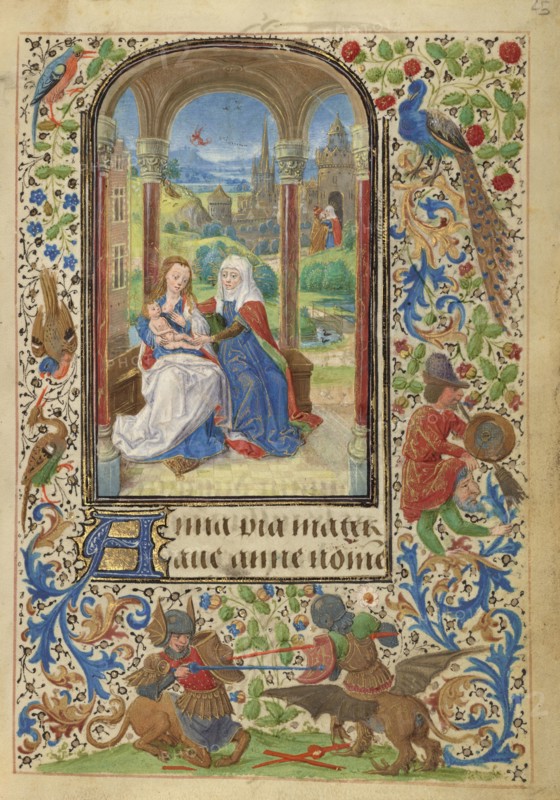 25
Anna pia mater
aue anne nom̄e